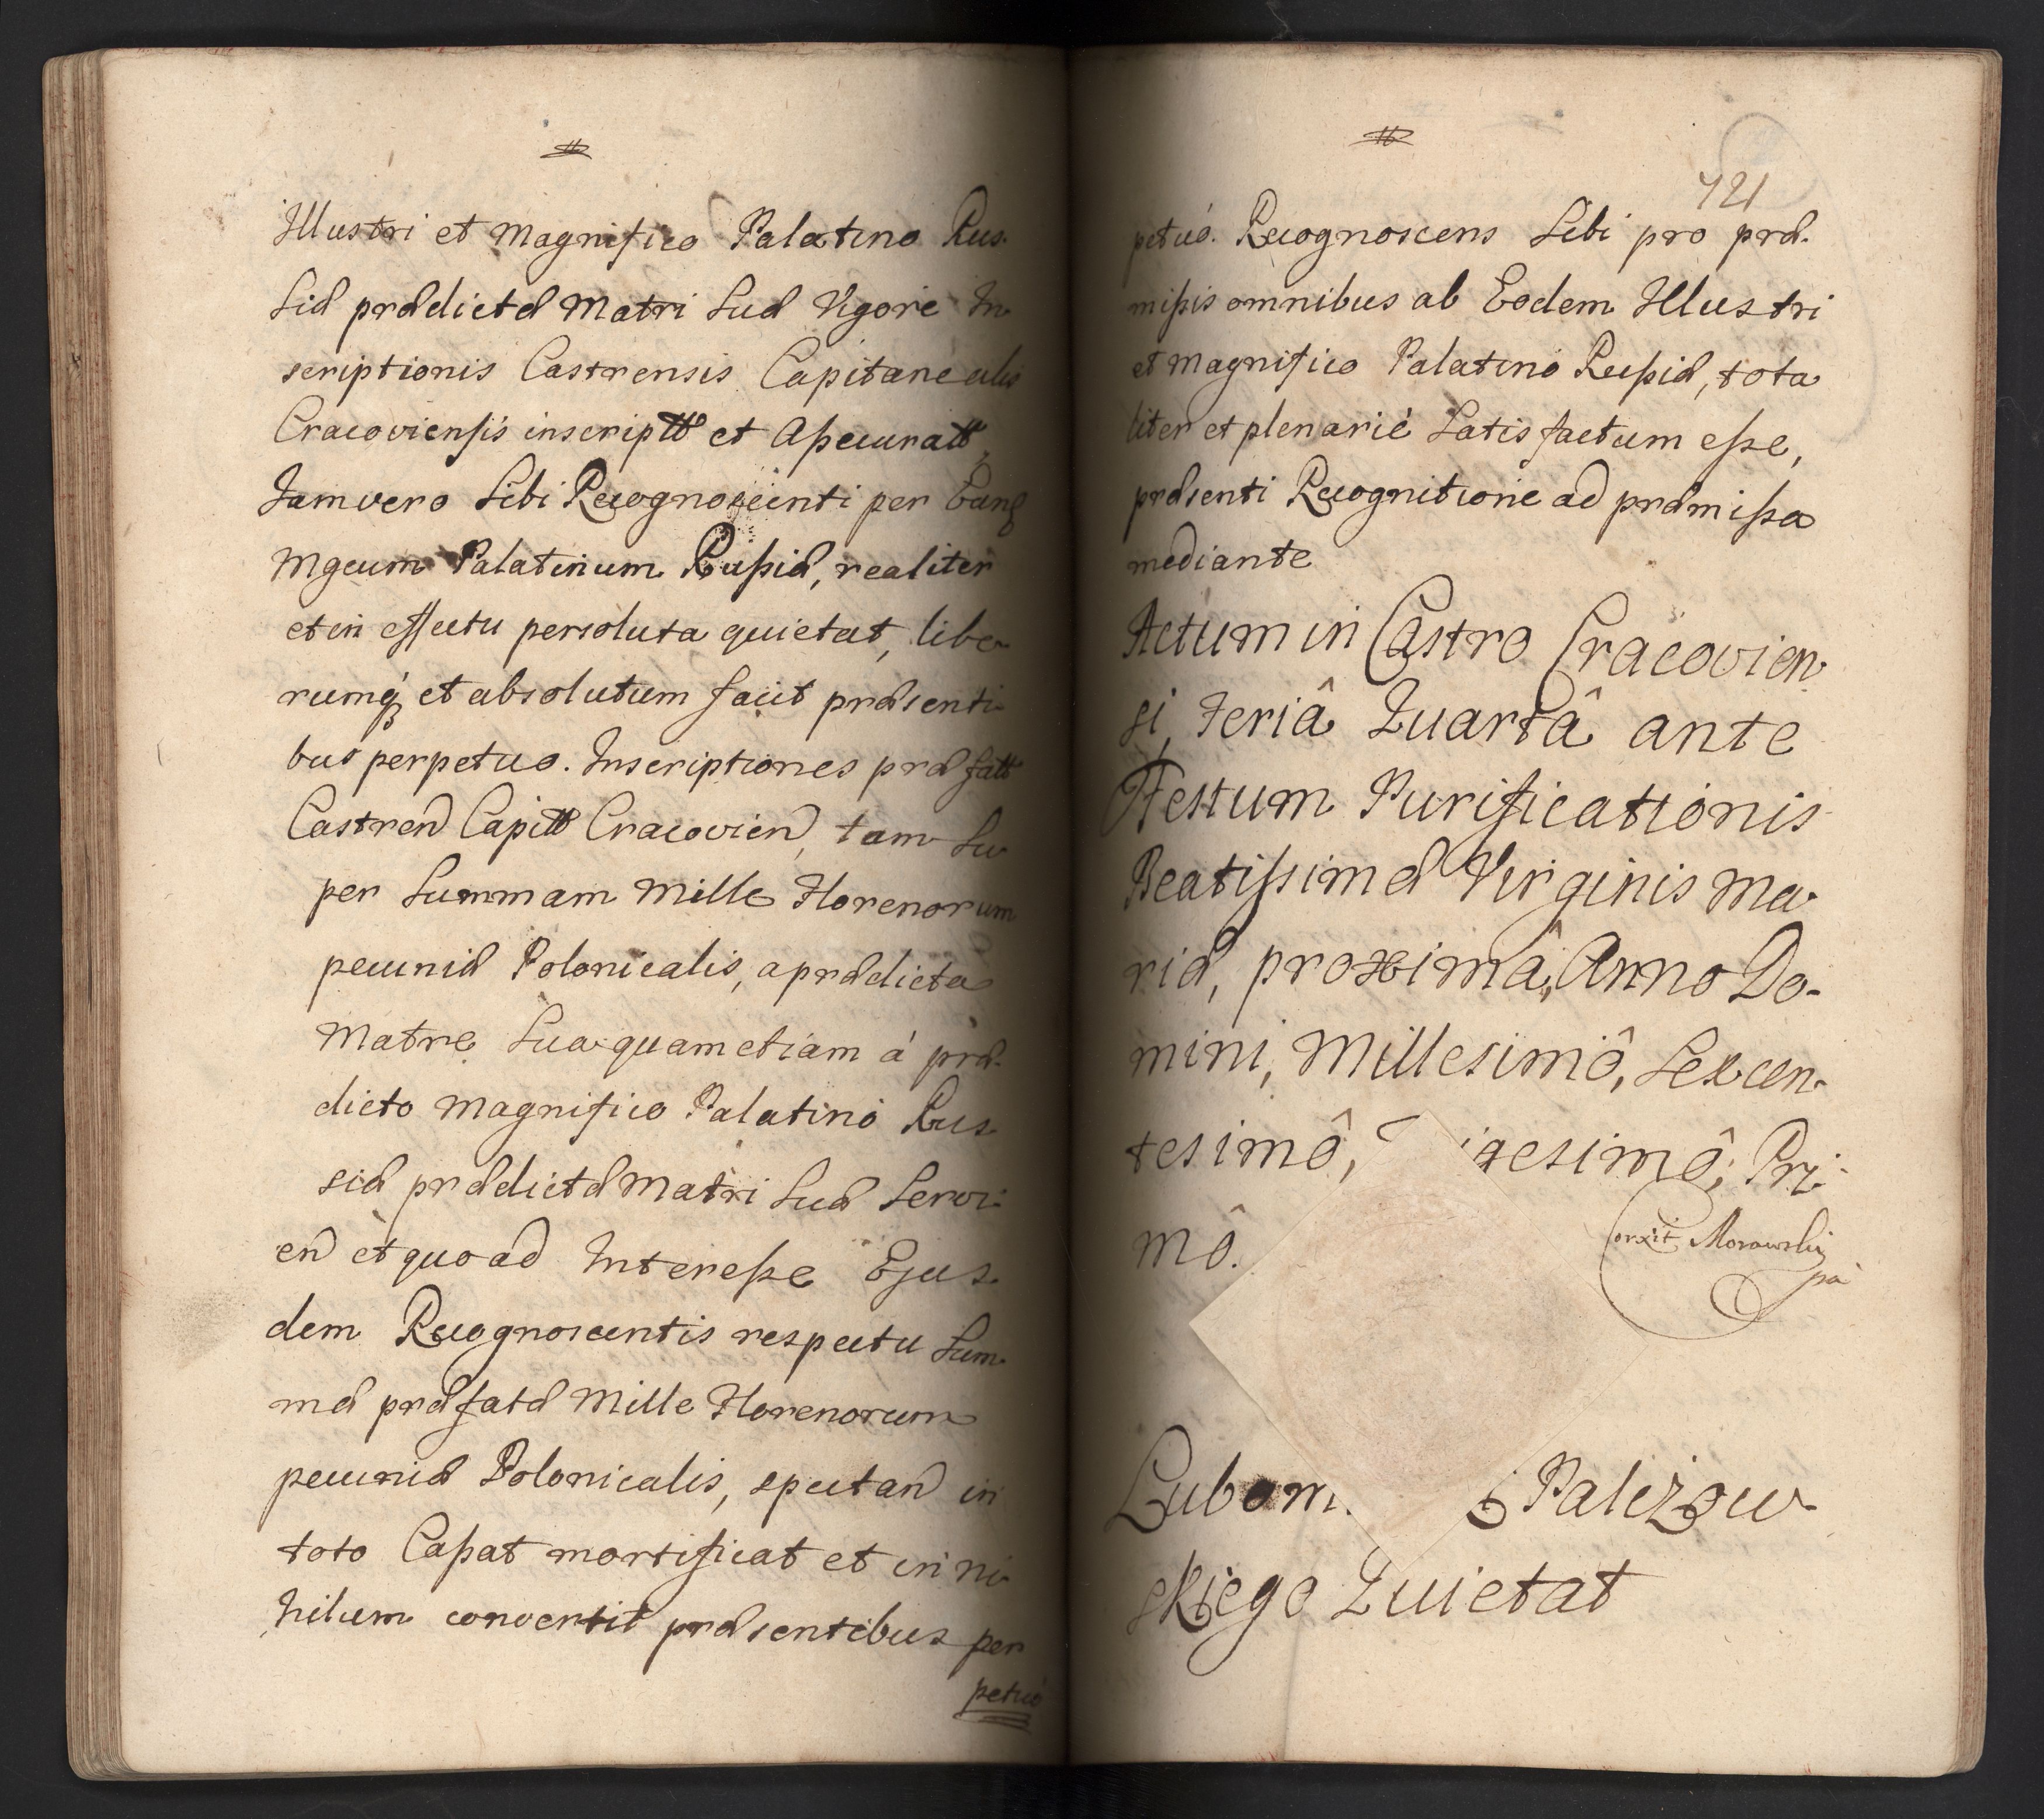 Illustri et Magnifico Palatino Rus-
siæ prædictæ Matri Suæ Vigore In-
scriptionis Castrensis Capitanealis
Cracoviensis inscriptt et Assecuratt,
Jam vero Sibi Recognoscenti per Eund
Mgcum Palatinum Russiæ, realiter
et in effectu persoluta quietat, libe-
rumq́ et absolutum facit præsenti-
bus perpetuo. Inscriptiones præfatt
Castren Capitt Cracovien, tam Su-
per Summam Mille Florenorum
pecuniæ Polonicalis, a prædicta
Matre Sua quam etiam á præ-
dicto Magnifico Palatino Rus-
siæ prædictæ Matri Suæ Servi-
en et quo ad Interesse Ejus-
dem Recognoscentis respectu Sum-
mæ præfatæ Mille Florenorum
pecuniæ Polonicalis, spectan in
toto Cassat mortificat et in ni-
hilum convertit præsentibus per
petuó
721
petuó. Recognoscens Sibi pro præ-
missis omnibus ab Eodem Illustri
et Magnifico Palatino Russiæ, tota
liter et plenarié Satisfactum esse,
præsenti Recognitione ad præmissa
mediante
Actum in Castro Cracovien-
si, Feriâ Quartâ ante
Festum Purificationis
Beatissimæ Virginis Ma-
riæ, proximâ, Anno Do-
mini, Millesimô, Sexcen-
tesimô, igesimô, Pri-
mô.
Corxit Morawski
pa
Lubom i Palczow
skiego Quietat